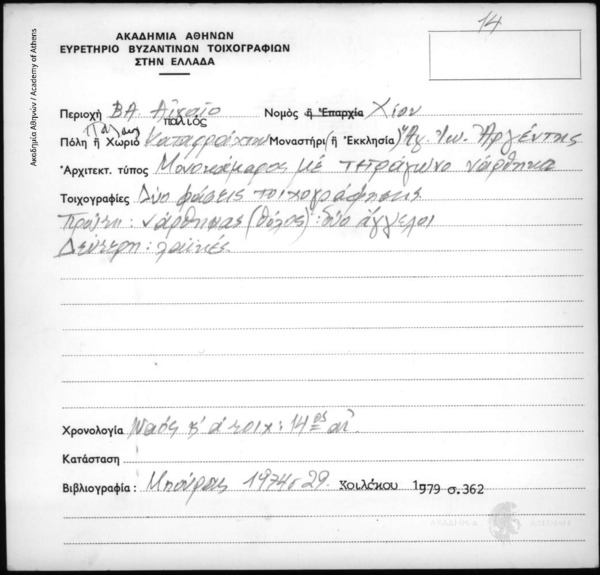 14
ΑΚΑΔΗΜΙΑ ΑΘΗΝΩΝ
ΕΥΡΕΤΗΡΙΟ ΒΥΖΑΝΤΙΝΩΝ ΤΟΙΧΟΓΡΑΦΙΩΝ
ΣΤΗΝ ΕΛΛΑΔΑ
Ακαδημία Αθηνών / Academy of Athens
Περιοχή ΒΑ. Αἰγαῖο Νομὸς ἢ Ἐπαρχία Χίου
παλιός
Πόλη ἢ Χωριό Καταρράκτη Μοναστήρι (ἢ Ἐκκλησία) Ἁγ. Ἰω. Ἀργέντης
Ἀρχιτεκτ. τύπος Μονοκάμαρος μέ τετράγωνο νάρθηκα
Τοιχογραφίες Δύο φάσεις τοιχογράφησης
Πρώτη: νάρθηκας (θόλος): δύο ἄγγελοι
Δεύτερη: λαϊκές
Χρονολογία Ναός κ' α' τοιχ: 14ος αἰ.
Κατάσταση
Βιβλιογραφία: Μπούρας 1974 σ 29. Κοιλάκου 1979 σ.362